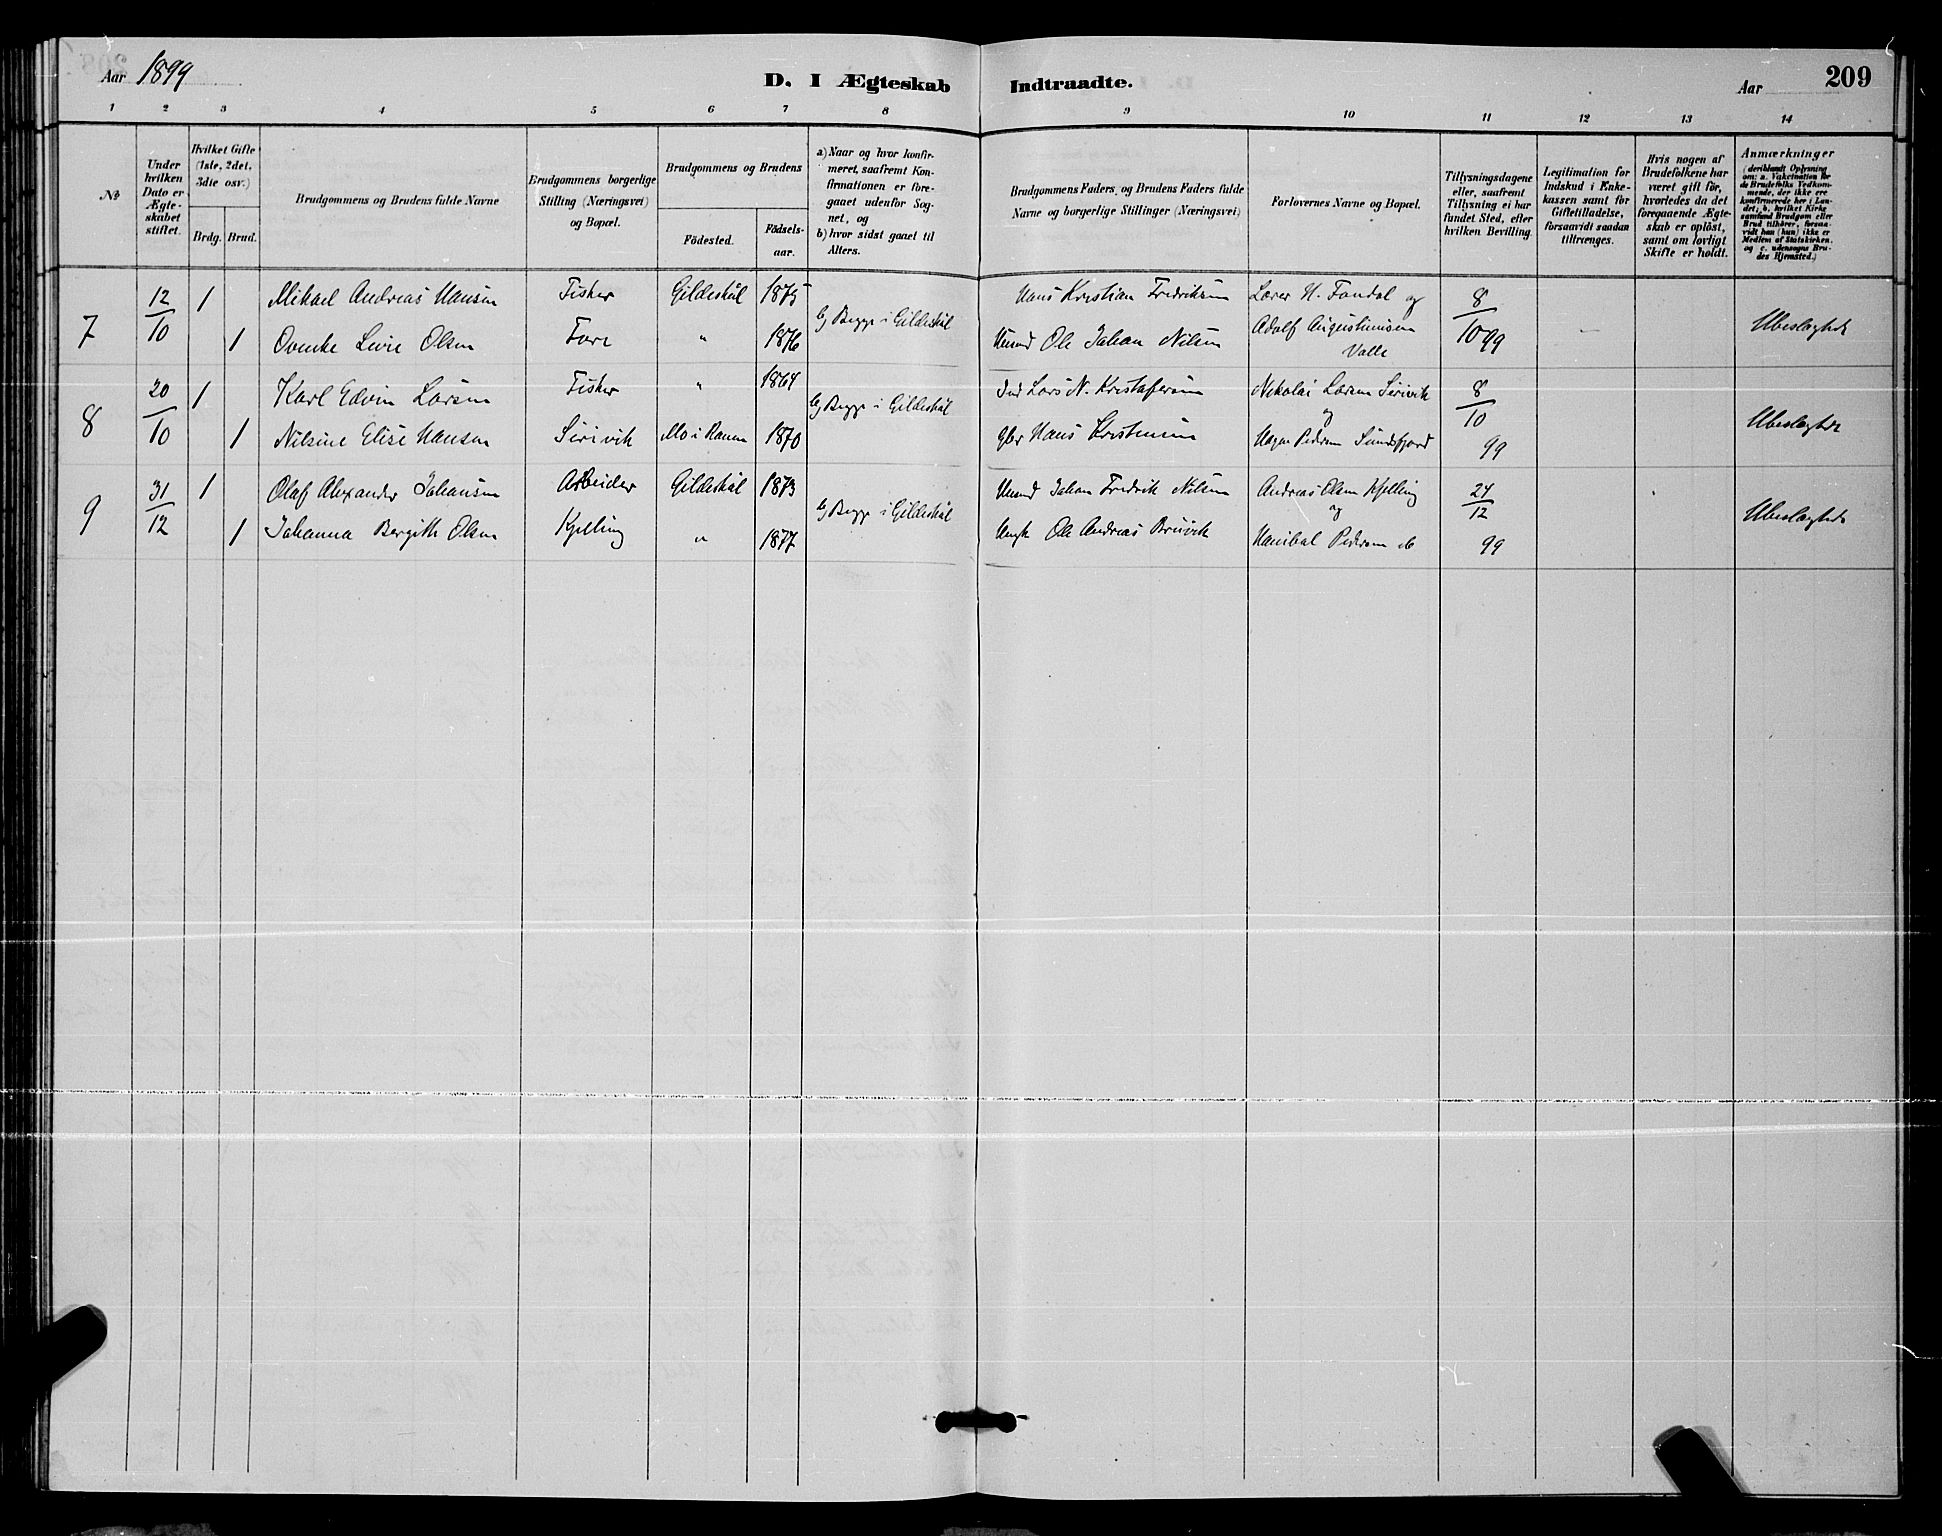 Aar 1899
D. I Ægteskab Indtraadte.
Aar
209
1 2 3 4 5 6 7 8 9 10 11 12 13 14
No
Under hvilken Dato er Ægteskabet stiftet.
Hvilket Gifte (1ste, 2det, 3die osv.)
Brdg. Brud.
Brudgommens og Brudens fulde Navne
Brudgommens borgerlige Stilling (Næringsvei) og Bopæl.
Brudgommens og Brudens
Födested.
Födselsaar.
a) Naar og hvor konfirmeret, saafremt Konfirmationen er foregaaet udenfor Sognet, og
b) hvor sidst gaaet til Alters.
Brudgommens Faders, og Brudens Faders fulde Navne og borgerlige Stillinger (Næringsvei)
Forlovernes Navne og Bopæl.
Tillysningsdagene eller, saafremt Tillysning ei har fundet Sted, efter hvilken Bevilling.
Legitimation for Indskud i Enkekassen samt for Giftetilladelse, forsaavidt saadan tiltrænges.
Hvis nogen af Brudefolkene har været gift för, hvorledes da det foregaaende Ægteskab er oplöst, samt om lovligt Skifte er holdt.
Anmærkninger
(deriblandt Oplysning om: a. Vakcination for de Brudefolks Vedkommende, der ikke ere konfirmerede her i Landet; b. hvilket Kirkesamfund Brudgom eller Brud tilhörer, forsaavidt han (hun) ikke er Medlem af Statskirken, og c. udensogns Brudes Hjemsted.)
7 12/10 1 Mikael Andreas Hansen Fisker Gildeskål 1875 b) Begge i Gildeskål Hans Kristian Fredriksen Lærer H. Fondal og 8/10 99 Ubeslægtede
1 Ovenke Livie Olsen Fore " 1876 Husmd Ole Johan Nilsen Adolf Augustinusen Valle
8 20/10 1 Karl Edvin Larsen Fisker " 1864 b) Begge i Gildeskål Ind Lars N. Kristofersen Nikolai Larsen Sørivik og 8/10 99 Ubeslægtede
1 Nilsine Elise Hansen Mo i Ranen 1870 Hans Kristensen Pedersen Sundsfjord
9 31/12 1 Olaf Alexander Johansen Arbeider Gildeskål 1873 b) Begge i Gildeskål Husmd Johan Fredrik Nilsen Andreas Olsen Kjelling og 24/12 99 Ubeslægtede
1 Johanna Bergith Olsen Kjelling " 1877 Ungk Ole Andreas Bruvik Hanibal Pedersen do